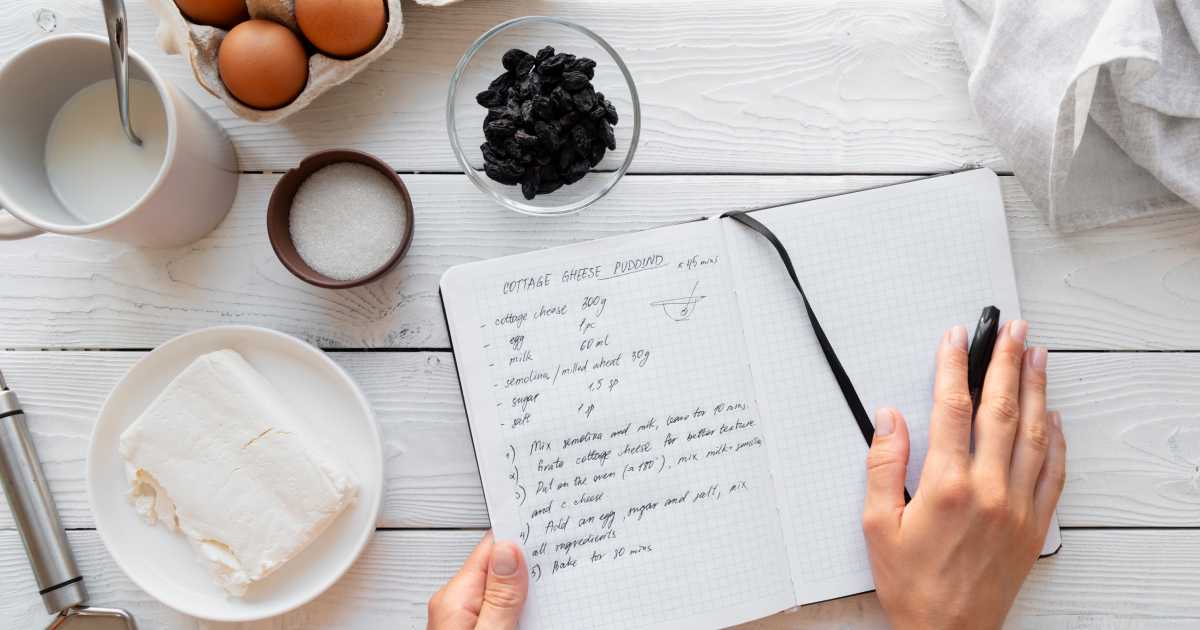 COTTAGE GHEESE PUDDIND × 45 mins
- cottage cheese 300g
- egg 1 pc
- milk 60 ml
- semolina / milled wheat 30g
- sugar 1,5 sp
- salt 1 sp
1) Mix semolina and milk, leave for 10 mins.
2) Grate cottage cheese for better texture
3) Put on the oven (a 180°), mix milk + semolina
and c. cheese
4) Add an egg, sugar and salt, mix
all ingredients
5) Bake for 30 mins